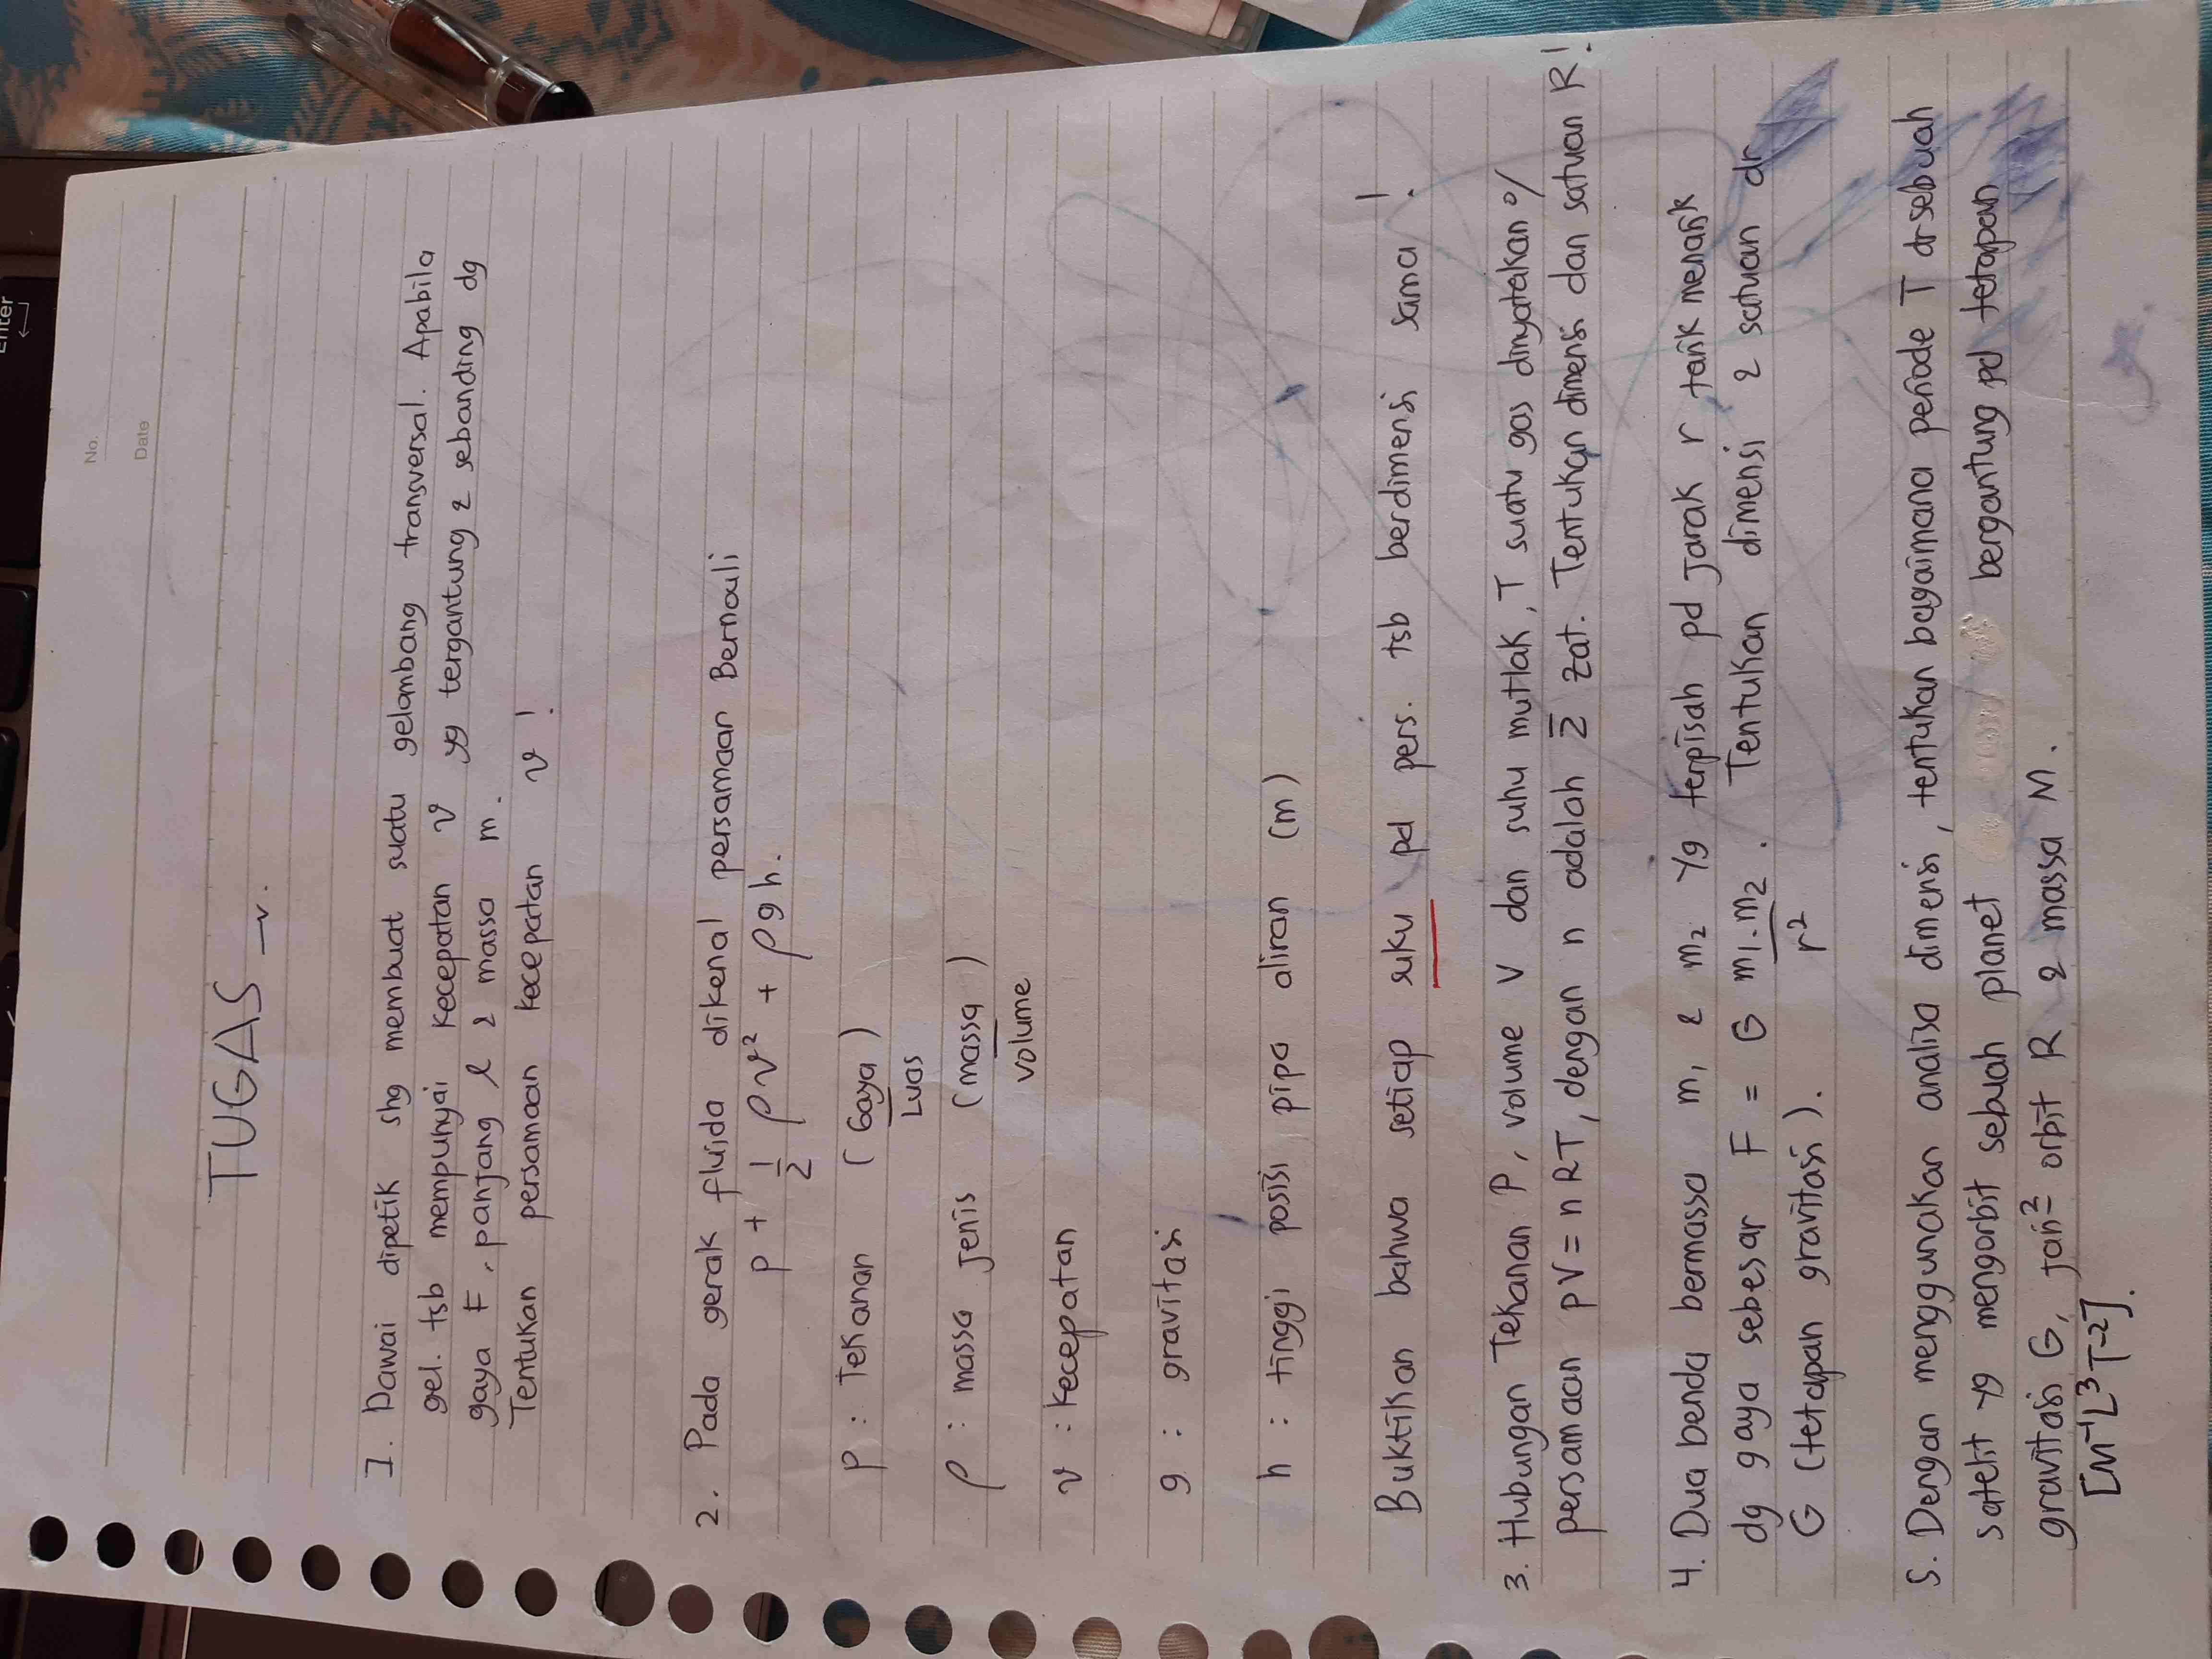 Enter
No.
Date
TUGAS
1. Dawai dipetik shg membuat suatu gelombang transversal. Apabila
gel. tsb mempunyai kecepatan v yg tergantung & sebanding dg
gaya F, panjang l & massa m.
Tentukan persamaan kecepatan v !
2. Pada gerak fluida dikenal persamaan Bernouli
p + 1/2 ρv² + ρgh.
p : Tekanan (Gaya/Luas)
ρ : massa jenis (massa/volume)
v : kecepatan
g : gravitasi
h : tinggi posisi pipa aliran (m)
Buktikan bahwa setiap suku pd pers. tsb berdimensi sama !
3. Hubungan Tekanan P, volume V dan suhu mutlak, T suatu gas dinyatakan o/
persamaan pV = n RT, dengan n adalah Σ zat. Tentukan dimensi dan satuan R!
4. Dua benda bermassa m₁ & m₂ yg terpisah pd jarak r tarik menarik
dg gaya sebesar F = G m₁.m₂/r². Tentukan dimensi & satuan dr
G (tetapan gravitasi).
5. Dengan menggunakan analisa dimensi, tentukan bagaimana periode T dr sebuah
satelit yg mengorbit sebuah planet bergantung pd tetapan
gravitasi G, jari² orbit R & massa M.
[M⁻¹L³T⁻²].